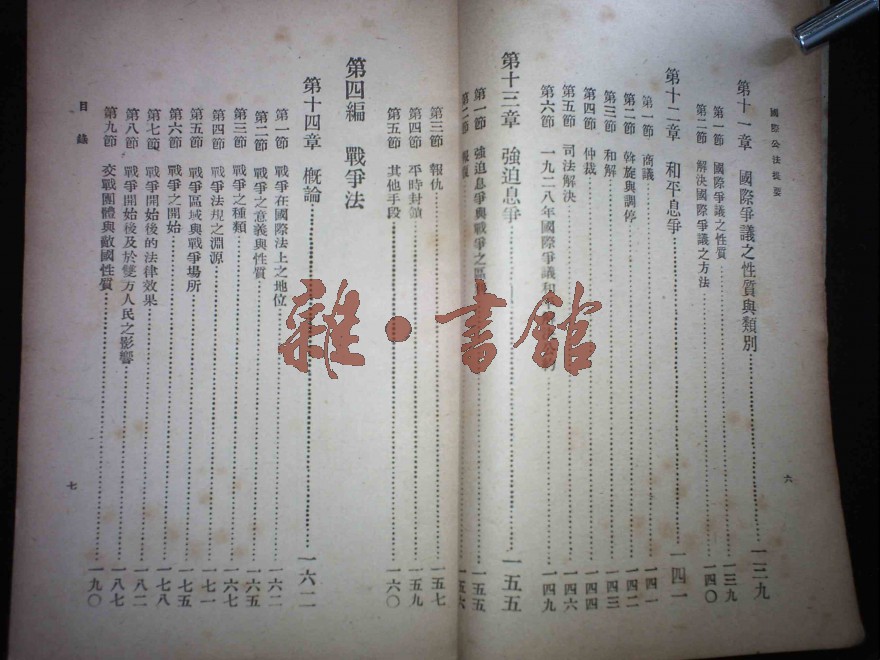 國際公法提要
第十一章 國際爭議之性質與類別 一三九
第一節 國際爭議之性質 一三九
第二節 解決國際爭議之方法 一四〇
第十二章 和平息爭 一四一
第一節 商議 一四一
第二節 斡旋與調停 一四二
第三節 和解 一四三
第四節 仲裁 一四四
第五節 司法解決 一四六
第六節 一九二八年國際爭議和 一四九
第十三章 強迫息爭 一五五
第一節 強迫息爭與戰爭之區 一五五
第二節 報復 一五六
六
第三節 報仇 一五七
第四節 平時封鎖 一五九
第五節 其他手段 一六〇
第四編 戰爭法
第十四章 概論 一六二
第一節 戰爭在國際法上之地位 一六二
第二節 戰爭之意義與性質 一六五
第三節 戰爭之種類 一六七
第四節 戰爭法規之淵源 一七一
第五節 戰爭區域與戰爭場所 一七五
第六節 戰爭之開始 一七八
第七節 戰爭開始後的法律效果 一八二
第八節 戰爭開始後及於雙方人民之影響 一八七
第九節 交戰團體與敵國性質 一九〇
目錄
七
雜·書館